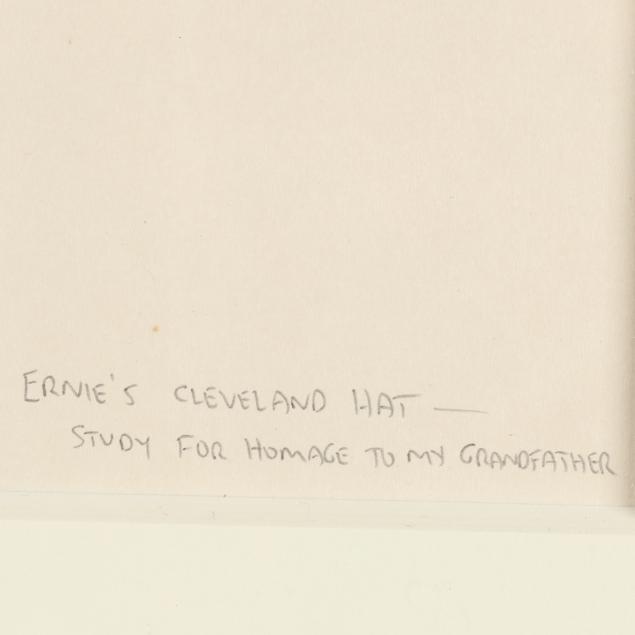 ERNIE'S CLEVELAND HAT —
STUDY FOR HOMAGE TO MY GRANDFATHER